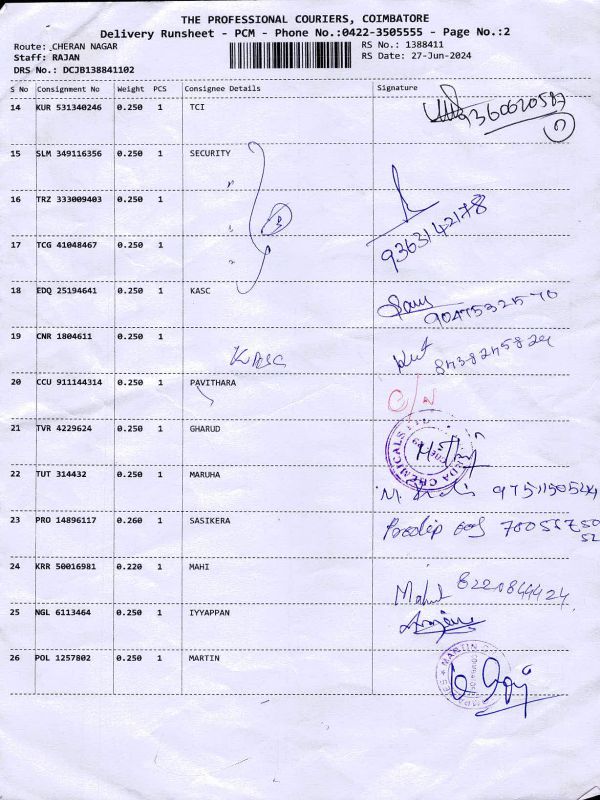 THE PROFESSIONAL COURIERS, COIMBATORE
Delivery Runsheet - PCM - Phone No.:0422-3505555 - Page No.:2
Route: CHERAN NAGAR RS No.: 1388411
Staff: RAJAN RS Date: 27-Jun-2024
DRS No.: DCJB138841102
S No Consignment No Weight PCS Consignee Details Signature
14 KUR 531340246 0.250 1 TCI 9360620587
15 SLM 349116356 0.250 1 SECURITY
16 TRZ 333009403 0.250 1
9363142178
17 TCG 41048467 0.250 1
18 EDQ 25194641 0.250 1 KASC
19 CNR 1804611 0.250 1
KASC 8438245824
20 CCU 911144314 0.250 1 PAVITHARA C/N
21 TVR 4229624 0.250 1 GHARUD
22 TUT 314432 0.250 1 MARUHA
23 PRO 14896117 0.260 1 SASIKERA
24 KRR 50016981 0.220 1 MAHI
8220844424
25 NGL 6113464 0.250 1 IYYAPPAN
26 POL 1257802 0.250 1 MARTIN